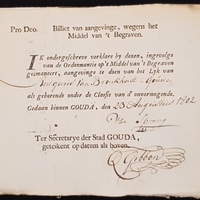 Pro Deo. Billiet van aangevinge, wegens het
Middel van 't Begraven.
IK ondergeschreve verklare by dezen, ingevolge
van de Ordonnantie op 't Middel van 't Begraven
geëmaneert, aangevinge te doen van het Lyk van
als gehorende onder de Classis van d' onvermogende.
Gedaan binnen GOUDA, den 23 Augustus 1802
Ter Secretarye der Stad GOUDA,
getekent op datum als boven.